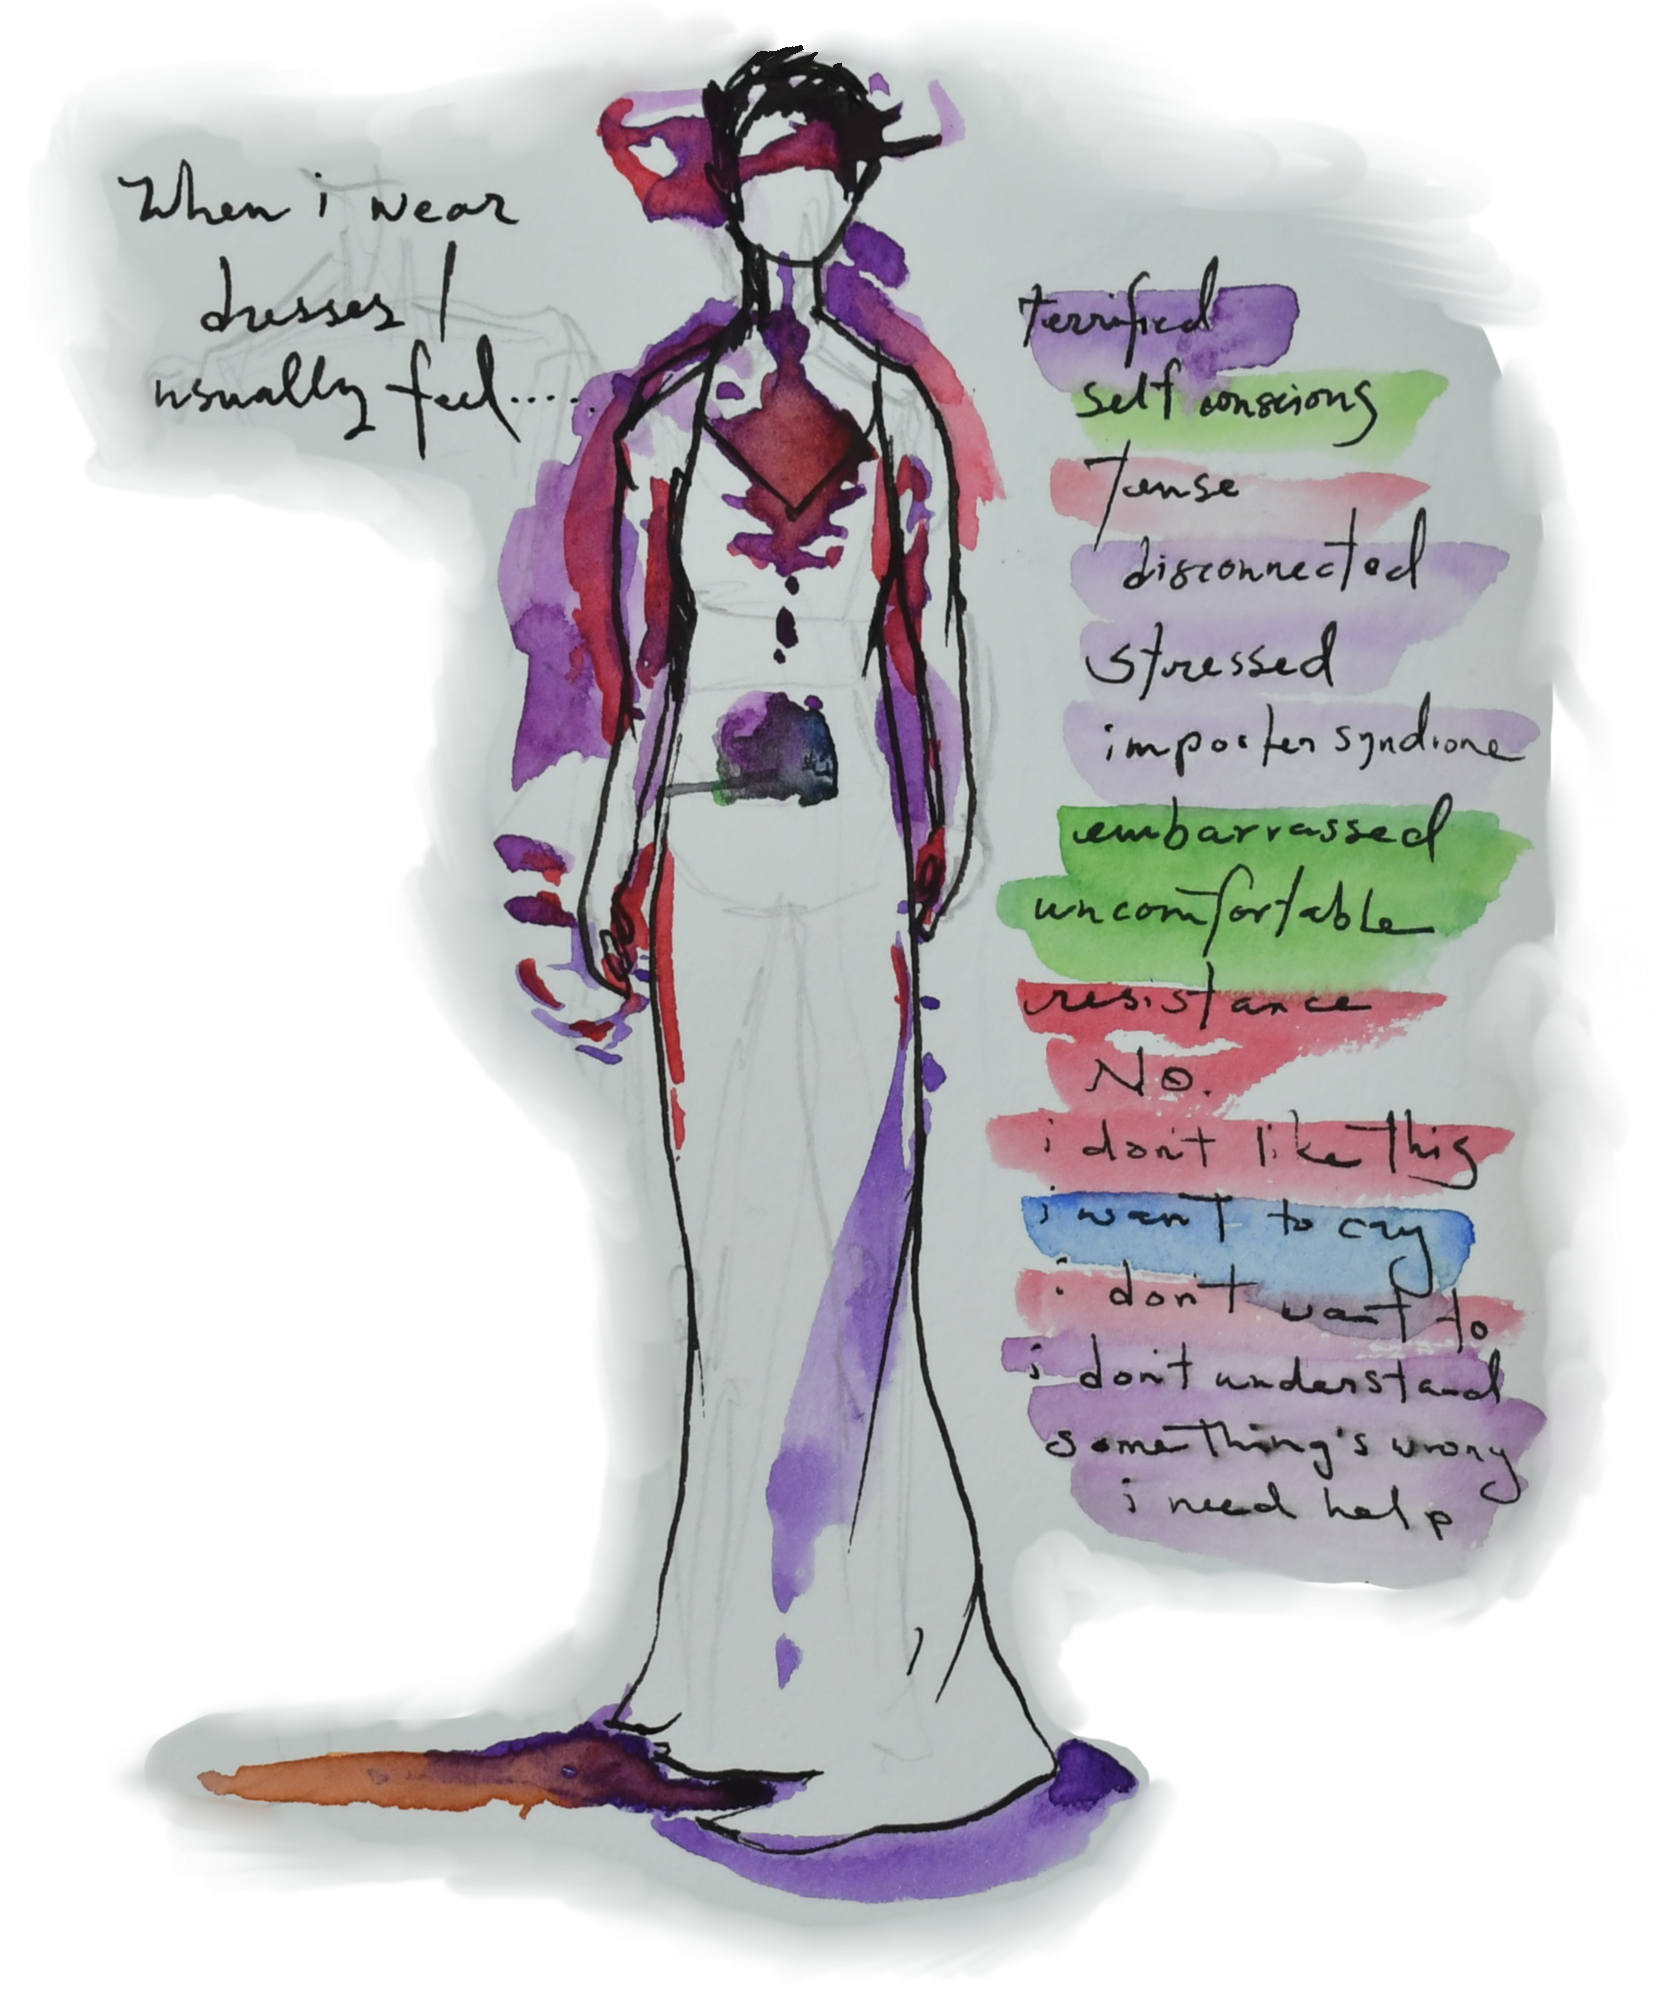 When i wear
dresses I
usually feel.....
terrified
self conscious
Tense
disconnected
stressed
imposter syndrone
embarrassed
uncomfortable
resistance
No.
i don't like this
i want to cry
i don't want to
i don't understand
something's wrong
i need help